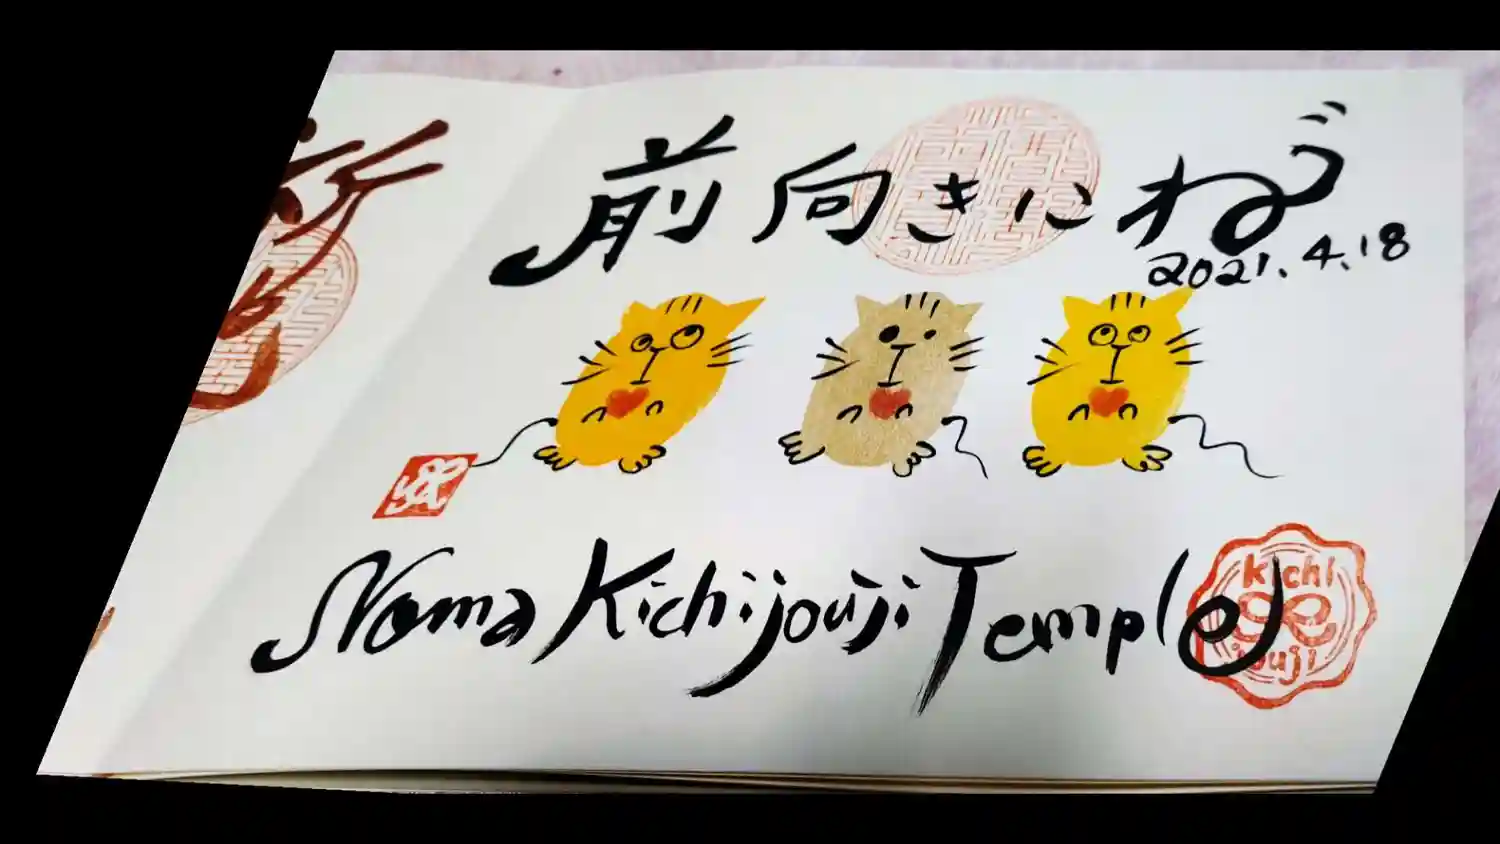 前向きにねぇ
2021.4.18
Noma Kichijouji Temple
kichi
jouji